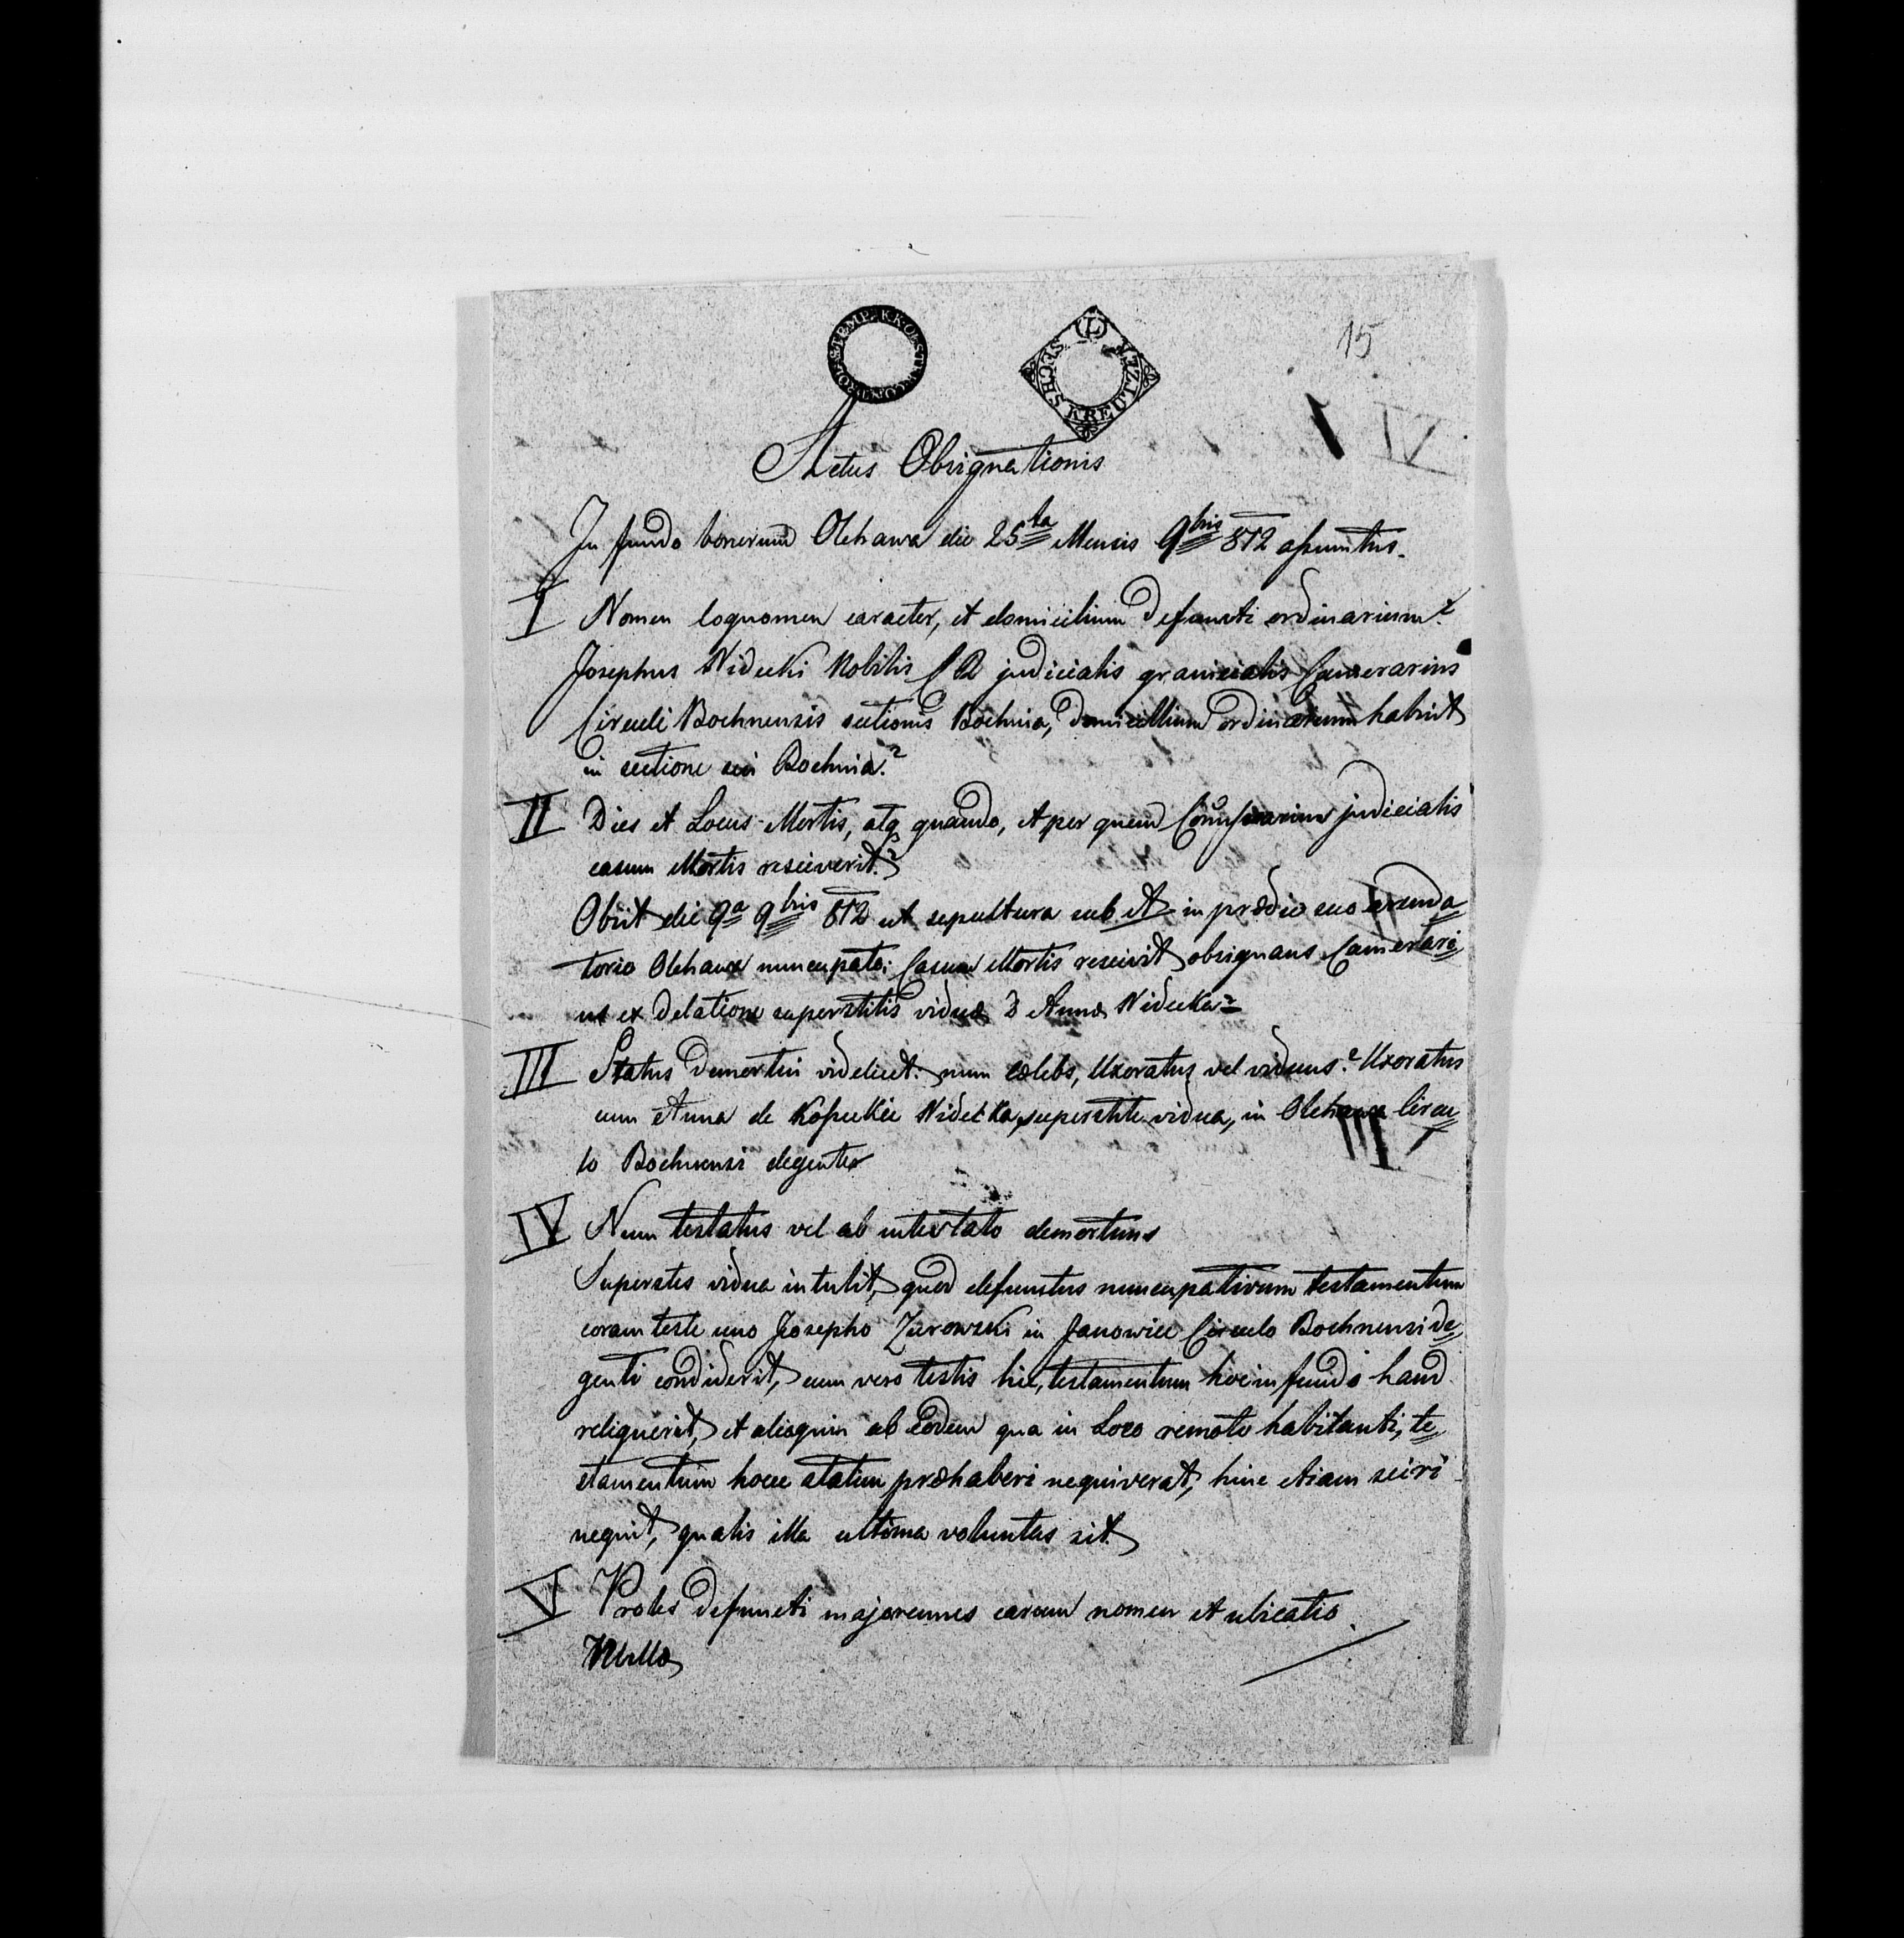 STEMP. K.K. OEST. CONTROL
(L) SECHS KREUTZER
15
IV
Actus Obsignationis
In fundo bonorum Olchawa die 25ta Mensis 9bris 812 assumtus.
I Nomen Cognomen caracter, et domicilium Defuncti ordinarium?
Josephus Nidecki Nobilis C R judicialis granicialis Camerarius
Circuli Bochnensis sectionis Bochnia, Domicillium ordinarium habuit
in sectione sui Bochnia?
II Dies et Locus Mortis, atq quando, et per quem judicialis
casum Mortis resciverit?
Obiit die 9a 9bris 812 ut sepultura sub A in prædio suo arenda
torio Olchawa nuncupato; Casum Mortis rescivit obsignans Camerari
us ex Delatione superstitis viduæ D Annæ Nidecka
III Status Demortui videlicet: num cælebs, Uxoratus vel viduus? Uxoratus
cum Anna de Nidecka, superstite vidua, in Olchawa Circu
lo Bochnensi degente
III
IV Num testatus vel ab intestato demortuus
Superstes vidua intulit, quod defunctus nuncupativum testamentum
coram teste uno Josepho Zurowski in Janowice Circulo Bochnensi de
genti condiderit, cum vero testis hic, testamentum hoc in fundo haud
reliquerit, et alioquin ab Eodem qua in Loco remoto habitanti, te
stamentum hocce statim præhaberi nequiverat, hinc etiam sciri
nequit, qualis illa ultima voluntas sit
V Proles Defuncti majorennes earum nomen et ubicatio.
Nullæ